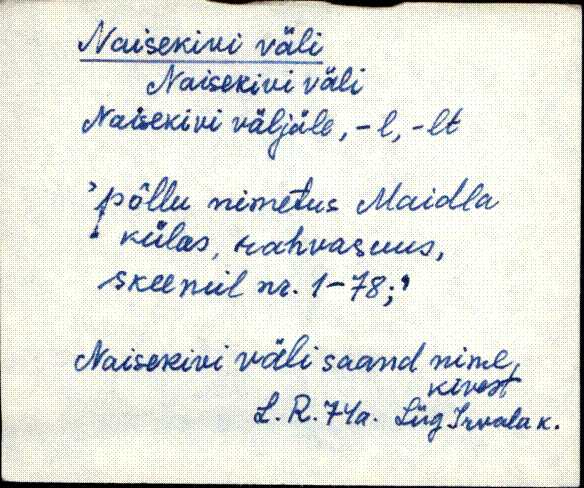 Naisekivi väli
Naisekivi väli
Naisekivi väljäle, -l, -lt
'põllu nimetus Maidla
külas, rahvasuus,
skeemil nr. 1-78;'
Naisekivi väli saand nime,
kivest
L. R. 74a. Lüg Irvala k.